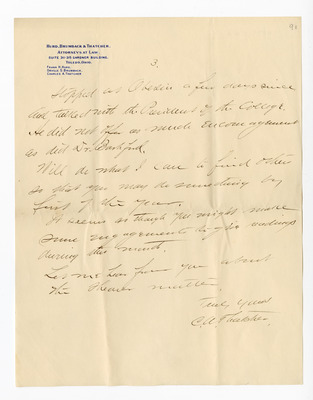 Hurd, Brumback & Thatcher,
Attorneys at Law,
Toledo, Ohio.
Frank H. Hurd,
Orville S. Brumback,
Charles A. Thatcher
3.
Stopped at Oberlin a few days since
and talked with the President of the College.
He did not offer as much encouragement
as did Dr.
Will do what I can to find others
so that you may do something by
first of the year.
It seems as though you might make
some engagements to give readings
during this month.
Let me hear from you about
the theater matter.
Truly yours
C. A. Thatcher